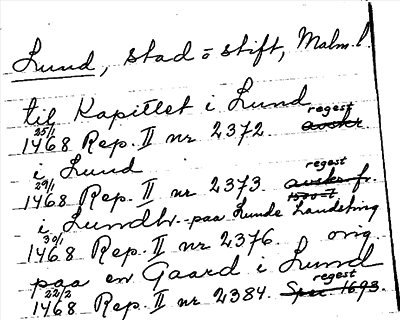 Lund, stad o stift, Malm. l.
til Kapitlet i Lund
25/1 regest
1468 Rep. II nr 2372. avskr
i Lund
29/1 regest
1468 Rep. II nr 2373 avskr. fr.
i Lundbr. paa Lunde Landsting
30/1
1468 Rep. II nr 2376 orig.
paa en Gaard i Lund
22/2 regest
1468 Rep. II nr 2384. Spec 1693.